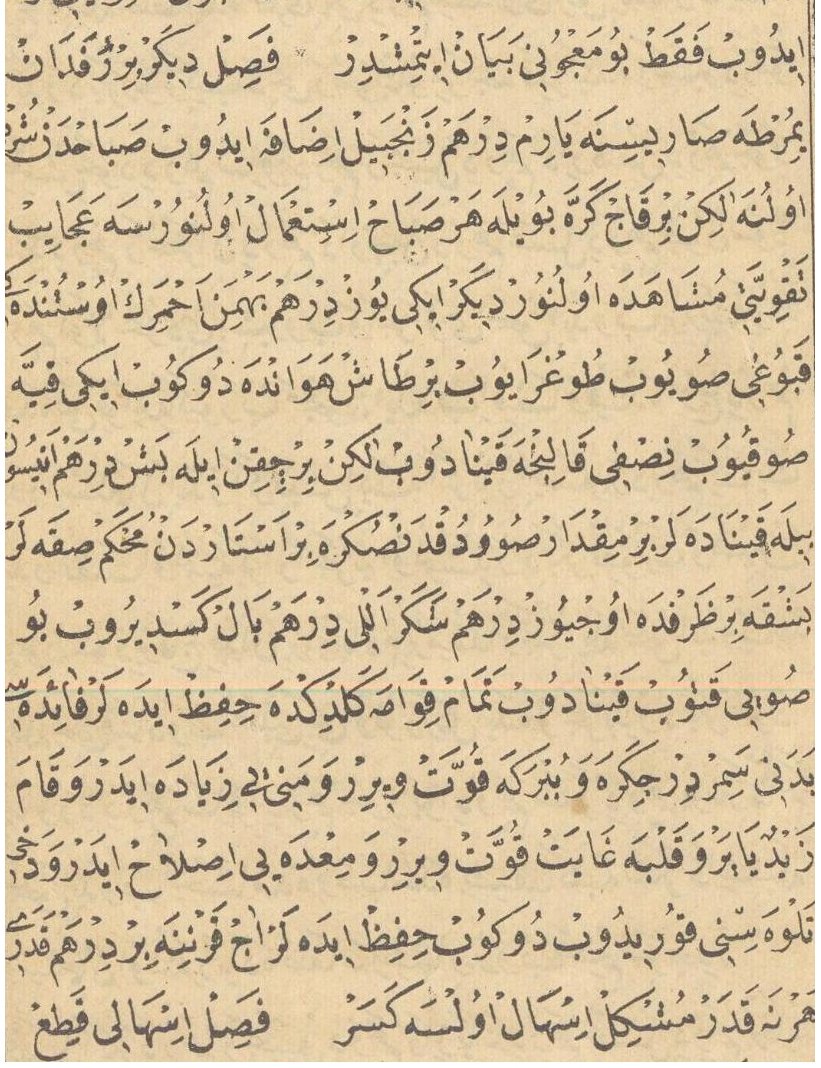 ايدُوبْ فَقَطْ بُو مَعْجُونِى بَيَانْ اِيتْمِشْدِرْ فَصِلْ دِيكَرْ بِرْ رَفَدَانْ
يِمُرْطَه صَارِيسِنَه يَارِمْ دِرْهَمْ زَنْجَبِيلْ اِضَافَه ايدُوبْ صَبَاحْدَنْ شُرْبْ
اوُلُنَه لَكِنْ بِرْقَاجْ كَرَّه بُويْلَه هَرْ صَبَاحْ اِسْتِعْمَالْ اوُلُنُورْسَه عَجَايِبْ
تَقْوِيَّتِى مُشَاهَدَه اوُلُنُورْ دِيكَرْ اِيكِى يُوزْ دِرْهَمْ بَهْمَنِ اَحْمَرِكْ اوُسْتُنْدَه كِى
قَبُوغِى صُويُوبْ طُوغْرَايُوبْ بِرْ طَاشْ هَوَانْدَه دُوكُوبْ اِيكِى قِيَّه
صُو قُيُوبْ نِصْفِى قَالِنْجَه قَيْنَادُوبْ لَكِنْ بِرْ چِقِنْ اِيلَه بَشْ دِرْهَمْ اَنِيسُونْ
بِيلَه قَيْنَادَه لَرْ بِرْ مِقْدَارْ صُووُدُقْدَنْصُكْرَه بِرْ اَسْتَارْدَنْ مُحْكَمْ صِقَه لَرْ
بَشْقَه بِرْ ظَرْفَدَه اوُجْيُوزْ دِرْهَمْ شَكَرْ اَللِى دِرْهَمْ بَالْ كَسْدِيرُوبْ بُو
صُويِى قَتُوبْ قَيْنَادُوبْ تَمَامْ قِوَامَه كَلْدِكْدَه حِفِظْ ايدَه لَرْ فَائِدَه سِى
بَدَنِى سَمِرْدِرْ جِكَرَه وَ بُبْرَكَه قُوَّتْ وِيرِرْ وَ مَنِيِى زِيَادَه ايدَرْ وَ قَامَ
زَبْدْ يَاپَرْ وَ قَلْبَه غَايَتْ قُوَّتْ وِيرِرْ وَ مِعْدَه يِى اِصْلَاحْ ايدَرْ وَ دَخِى
تَلْوَه سِنِى قُورِيدُوبْ دُوكُوبْ حِفِظْ ايدَه لَرْ اَجْ قَرْنِنَه بِرْ دِرْهَمْ قَدَرِى
هَرْ نَه قَدَرْ مُشْكِلْ اِسْهَالْ اوُلْسَه كَسَرْ فَصِلْ اِسْهَالِى قَطِعْ